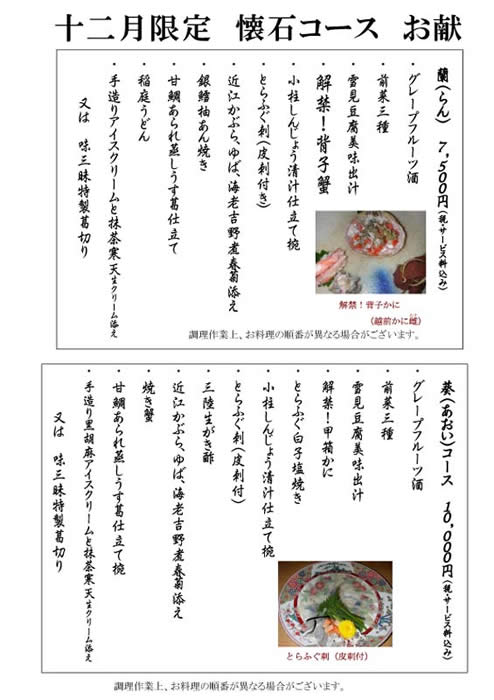 十二月限定　懐石コース　お献
蘭（らん）　７，５００円（税・サービス料込み）
・グレープフルーツ酒
・前菜三種
・雪見豆腐美味出汁
・解禁！背子蟹
・小柱しんじょう清汁仕立て椀
・とらふぐ刺（皮刺付き）
・近江かぶら、ゆば、海老吉野煮春菊添え
・銀鱈柚あん焼き
・甘鯛あられ蒸しうす葛仕立て
・稲庭うどん
・手造りアイスクリームと抹茶寒天生クリーム添え
又は　味三昧特製葛切り
解禁！背子かに
（越前かに雌）
調理作業上、お料理の順番が異なる場合がございます。
葵（あおい）コース　１０，０００円（税・サービス料込み）
・グレープフルーツ酒
・前菜三種
・雪見豆腐美味出汁
・解禁！甲箱かに
・とらふぐ白子塩焼き
・小柱しんじょう清汁仕立て椀
・とらふぐ刺（皮刺付）
・三陸生がき酢
・近江かぶら、ゆば、海老吉野煮春菊添え
・焼き蟹
・甘鯛あられ蒸しうす葛仕立て椀
・手造り黒胡麻アイスクリームと抹茶寒天生クリーム添え
又は　味三昧特製葛切り
とらふぐ刺（皮刺付）
調理作業上、お料理の順番が異なる場合がございます。